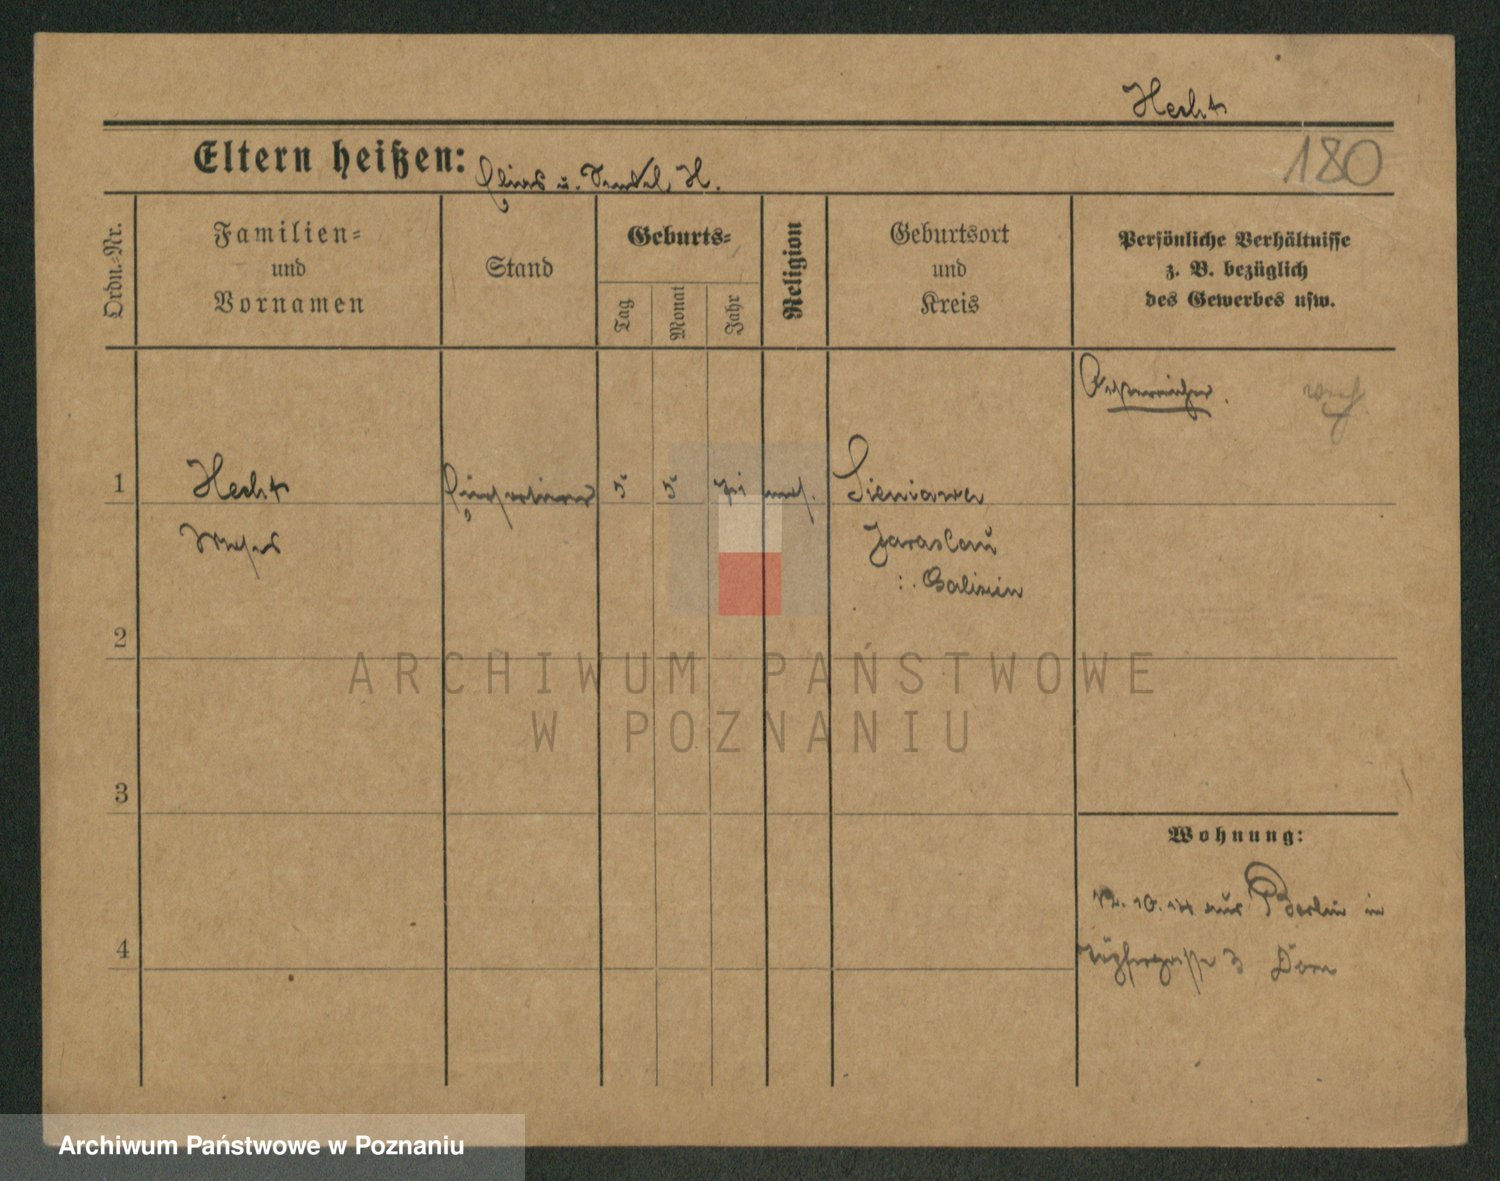 Hecht
180
Eltern heißen: Elias u. H.
Ordn.-Nr.
Familien-
und
Vornamen
Stand
Geburts-
Tag
Monat
Jahr
Religion
Geburtsort
und
Kreis
Persönliche Verhältnisse
z. B. bezüglich
des Gewerbes usw.
Österreicher.
1
Hecht
5
5
mos.
Sieniawa
Jaroslau
Galizien
2
ARCHIWUM PAŃSTWOWE
W POZNANIU
3
Wohnung:
12. 10. 14 aus Berlin in
3
4
Archiwum Państwowe w Poznaniu